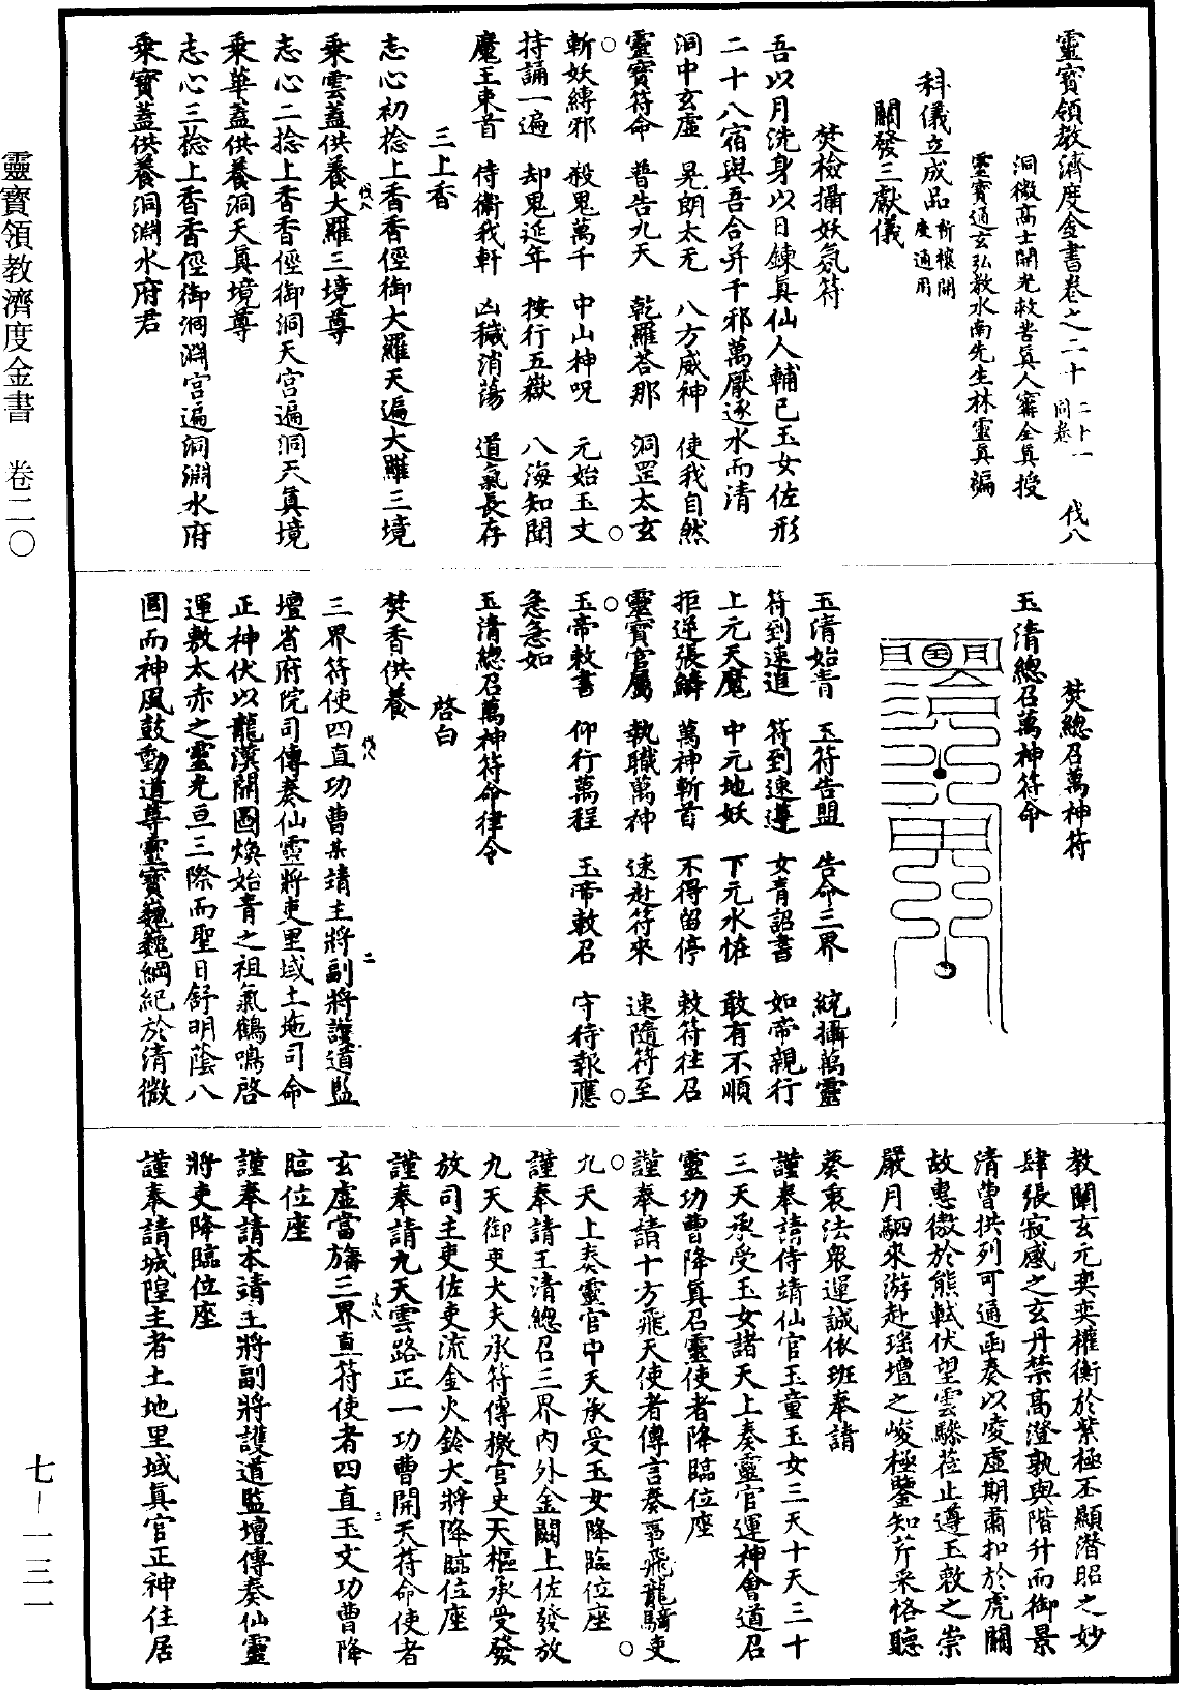 靈寶領教濟度金書卷之二十 二十一同卷 伐八
洞微高士開光救苦真人甯全真授
靈寶通玄弘教水南先生林靈真編
科儀立成品 祈禳開度通用
關發三獻儀
焚檢攝妖氛符
吾以月洗身以日鍊真仙人輔已玉女佐形
二十八宿與吾合并千邪萬厭逐水而清
洞中玄虛 晃朗太无 八方威神 使我自然
靈寶符命 普告九天 乾羅荅那 洞罡太玄
斬妖縛邪 殺鬼萬千 中山神呪 元始玉文
持誦一遍 却鬼延年 按行五嶽 八海知聞
魔王束首 侍衛我軒 凶穢消蕩 道氣長存
三上香
志心初捻上香香徑御大羅天遍大羅三境
乘雲蓋供養大羅三境尊
志心二捻上香香徑御洞天宮遍洞天真境
乘華蓋供養洞天真境尊
志心三捻上香香徑御洞淵宮遍洞淵水府
乘寶蓋供養洞淵水府君
焚總召萬神符
玉清總召萬神符命
玉清始青 玉符告盟 告命三界 統攝萬靈
符到速追 符到速遵 女青詔書 如帝親行
上元天魔 中元地妖 下元水怪 敢有不順
拒逆張鱗 萬神斬首 不得留停 敕符往召
靈寶官屬 執職萬神 速赴符來 速隨符至
玉帝敕書 仰行萬程 玉帝敕召 守待報應
急急如
玉清總召萬神符命律令
啓白
焚香供養
三界符使四直功曹某靖主將副將護道監
壇省府院司傳奏仙靈將吏里域土地司命
正神伏以龍漢開圖煥始青之祖氣鶴鳴啓
運敷太赤之靈光亘三際而聖日舒明蔭八
圓而神風鼓動道尊靈寶巍巍綱紀於清微
教闡玄元奕奕權衡於紫極丕顯潜昭之妙
肆張寂感之玄丹禁高澄孰與階升而御景
清曹拱列可通函奏以凌虛期肅扣於虎關
故惠徼於熊軾伏望雲驂莅止遵玉敕之崇
嚴月駟來游赴瑶壇之峻極鑒知芹采恪聽
葵衷法眾運誠依班奉請
謹奉請侍靖仙官玉童玉女三天十天三十
三天承受玉女諸天上奏靈官運神會道召
靈功曹降真召靈使者降臨位座
謹奉請十方飛天使者傳言奏事飛龍騎吏
九天上奏靈官中天承受玉女降臨位座
謹奉請玉清總召三界內外金闕上佐發放
九天御吏大夫承符傳檄官史天樞承受發
放司主吏佐吏流金火鈴大將降臨位座
謹奉請九天雲路正一功曹開天符命使者
玄虛當旛三界直符使者四直玉文功曹降
臨位座
謹奉請本靖主將副將護道監壇傳奏仙靈
將吏降臨位座
謹奉請城隍主者土地里域真官正神住居
靈寶領教濟度金書 卷二〇
七－一三一